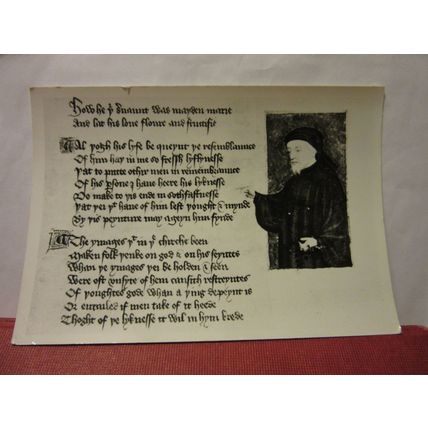 How he þͬ s̉uaunt was mayden marie
And lat his loue floure and fructifie
Al þogh his lyfe be queynt þe resemblaunce
Of him haþ in me so fressh lyflynesse
Þat to putte othir men in remembraunce
Of his ꝑsone I haue heere his lyknesse
Do make to þis ende in sothfastnesse
Þat þei þͭ haue of him lest þought & mynde
By þis peynture may ageyn him fynde
The ymages þͭ in þͤ chirche been
Maken folk þenke on god & on his seyntes
Whan þe ymages þei be holden & seen
Were oft unsyte of hem causith restreyntes
Of þoughtes gode whan a þing depeynt is
Or entailed if men take of it heede
Thoght of þe lyknesse it wil in hym brede